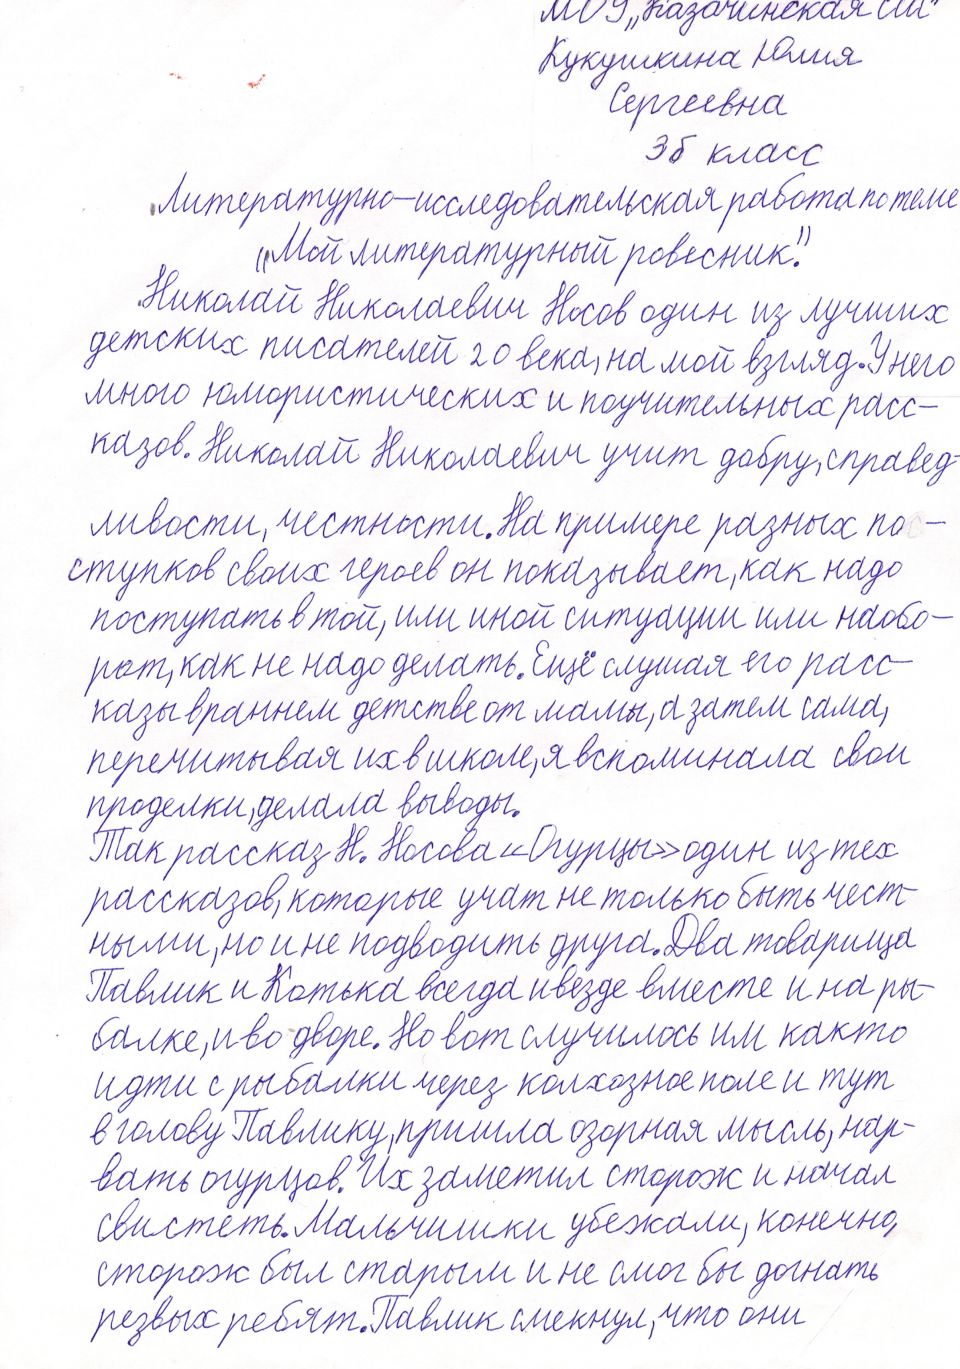 МОУ „Казачинская СШ"
Кукушкина Юлия
Сергеевна
3б класс
Литературно-исследовательская работа по теме
„Мой литературный ровесник".
Николай Николаевич Носов один из лучших
детских писателей 20 века, на мой взгляд. У него
много юмористических и поучительных расс-
казов. Николай Николаевич учит добру, справед-
ливости, честности. На примере разных пос-
ступков своих героев он показывает, как надо
поступать в той, или иной ситуации или наобо-
рот, как не надо делать. Ещё слушая его расс-
казы в раннем детстве от мамы, а затем сама,
перечитывая их в школе, я вспоминала свои
проделки, делала выводы.
Так рассказ Н. Носова «Огурцы» один из тех
рассказов, которые учат не только быть чест-
ными, но и не подводить друга. Два товарища
Павлик и Котька всегда и везде вместе и на ры-
балке, и во дворе. Но вот случилось им както
идти с рыбалки через колхозное поле и тут
в голову Павлику, пришла озорная мысль, нар-
вать огурцов. Их заметил сторож и начал
свистеть. Мальчишки убежали, конечно,
сторож был старым и не смог бы догнать
резвых ребят. Павлик смекнул, что они